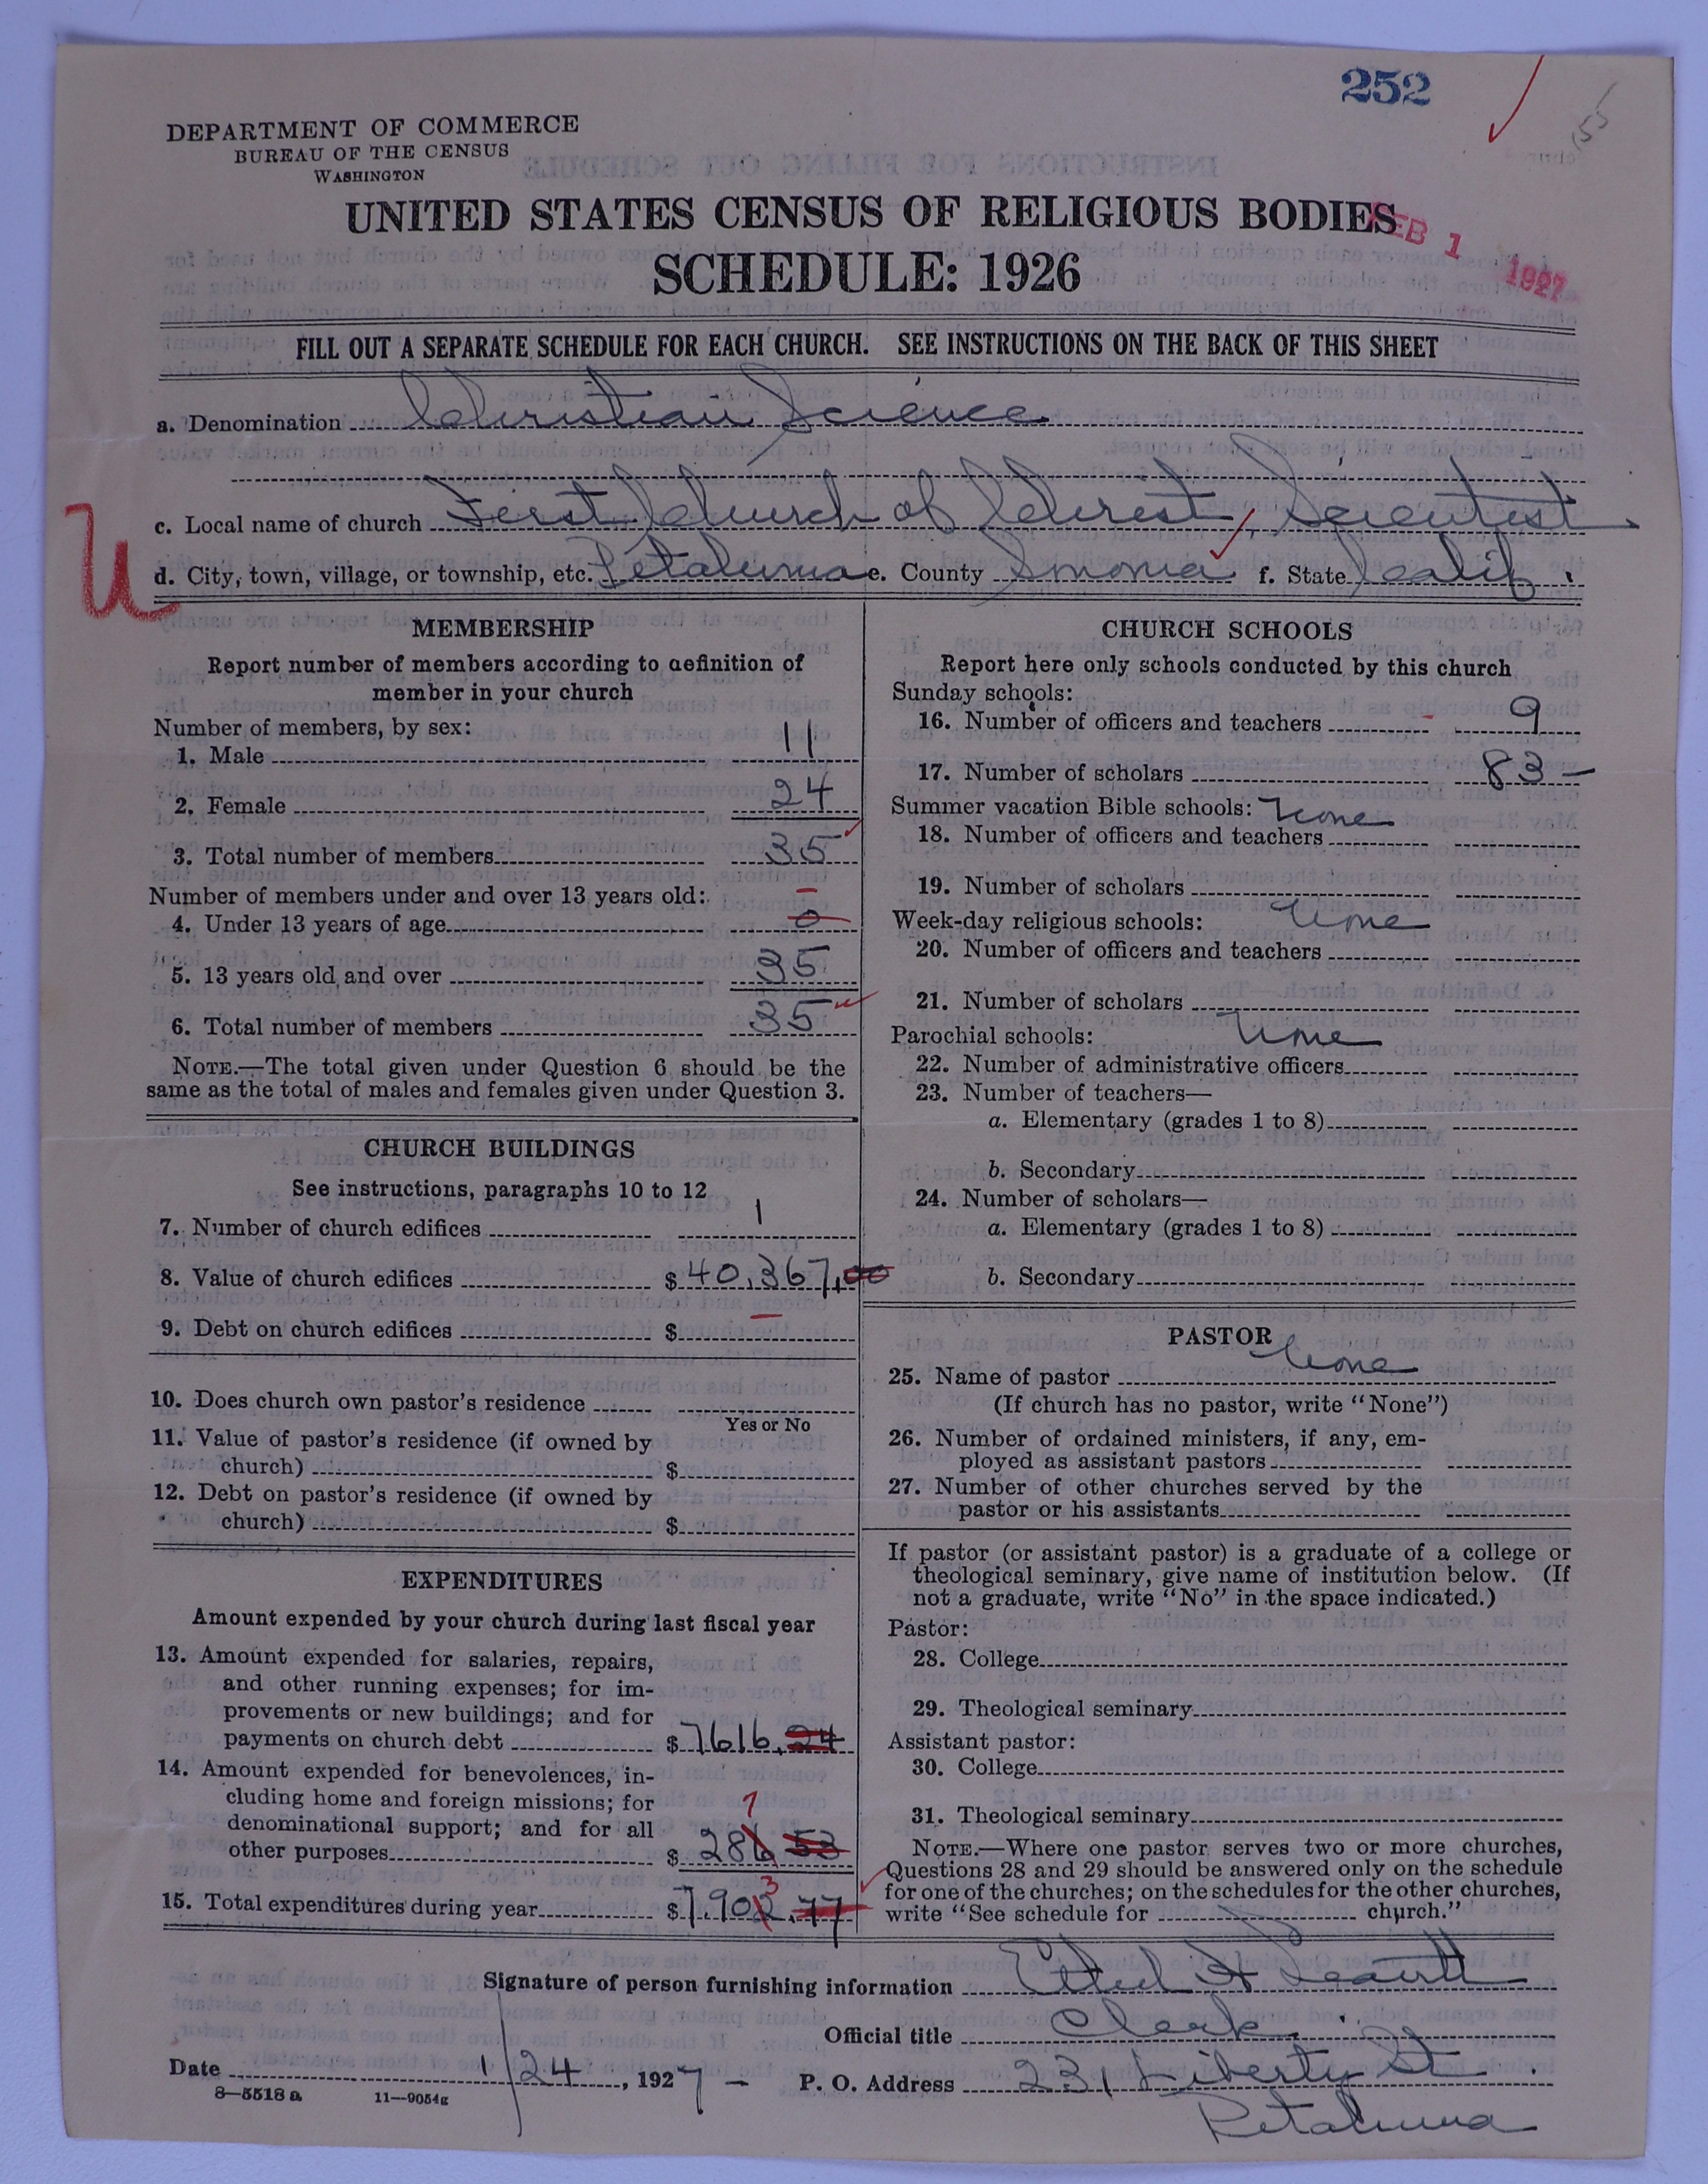 252
DEPARTMENT OF COMMERCE
BUREAU OF THE CENSUS
WASHINGTON
UNITED STATES CENSUS OF RELIGIOUS BODIES
SCHEDULE: 1926
FEB 1 1927
FILL OUT A SEPARATE SCHEDULE FOR EACH CHURCH. SEE INSTRUCTIONS ON THE BACK OF THIS SHEET
a. Denomination Christian Science
c. Local name of church First Church of Christ, Scientist
U
d. City, town, village, or township, etc. Petaluma e. County Sonoma f. State Calif.
MEMBERSHIP
Report number of members according to definition of
member in your church
Number of members, by sex:
1. Male 11
2. Female 24
3. Total number of members 35
Number of members under and over 13 years old:
4. Under 13 years of age 0
5. 13 years old and over 35
6. Total number of members 35
NOTE.—The total given under Question 6 should be the
same as the total of males and females given under Question 3.
CHURCH BUILDINGS
See instructions, paragraphs 10 to 12
7. Number of church edifices 1
8. Value of church edifices $ 40,367.00
9. Debt on church edifices $ —
10. Does church own pastor's residence
Yes or No
11. Value of pastor's residence (if owned by
church) $
12. Debt on pastor's residence (if owned by
church) $
EXPENDITURES
Amount expended by your church during last fiscal year
13. Amount expended for salaries, repairs,
and other running expenses; for im-
provements or new buildings; and for
payments on church debt $ 7616.24
14. Amount expended for benevolences, in-
cluding home and foreign missions; for
denominational support; and for all
7
other purposes $ 286 53
3
15. Total expenditures during year $ 7,902.77
CHURCH SCHOOLS
Report here only schools conducted by this church
Sunday schools:
16. Number of officers and teachers 9
17. Number of scholars 83 –
Summer vacation Bible schools: None
18. Number of officers and teachers
19. Number of scholars
Week-day religious schools: None
20. Number of officers and teachers
21. Number of scholars
Parochial schools: None
22. Number of administrative officers
23. Number of teachers—
a. Elementary (grades 1 to 8)
b. Secondary
24. Number of scholars—
a. Elementary (grades 1 to 8)
b. Secondary
PASTOR
25. Name of pastor None
(If church has no pastor, write "None")
26. Number of ordained ministers, if any, em-
ployed as assistant pastors
27. Number of other churches served by the
pastor or his assistants
If pastor (or assistant pastor) is a graduate of a college or
theological seminary, give name of institution below. (If
not a graduate, write "No" in the space indicated.)
Pastor:
28. College
29. Theological seminary
Assistant pastor:
30. College
31. Theological seminary
NOTE.—Where one pastor serves two or more churches,
Questions 28 and 29 should be answered only on the schedule
for one of the churches; on the schedules for the other churches,
write "See schedule for church."
Signature of person furnishing information Ethel
Official title Clerk.
Date 1/24, 1927 – P. O. Address 231 Liberty St.
Petaluma
8—5518 a 11—9054g